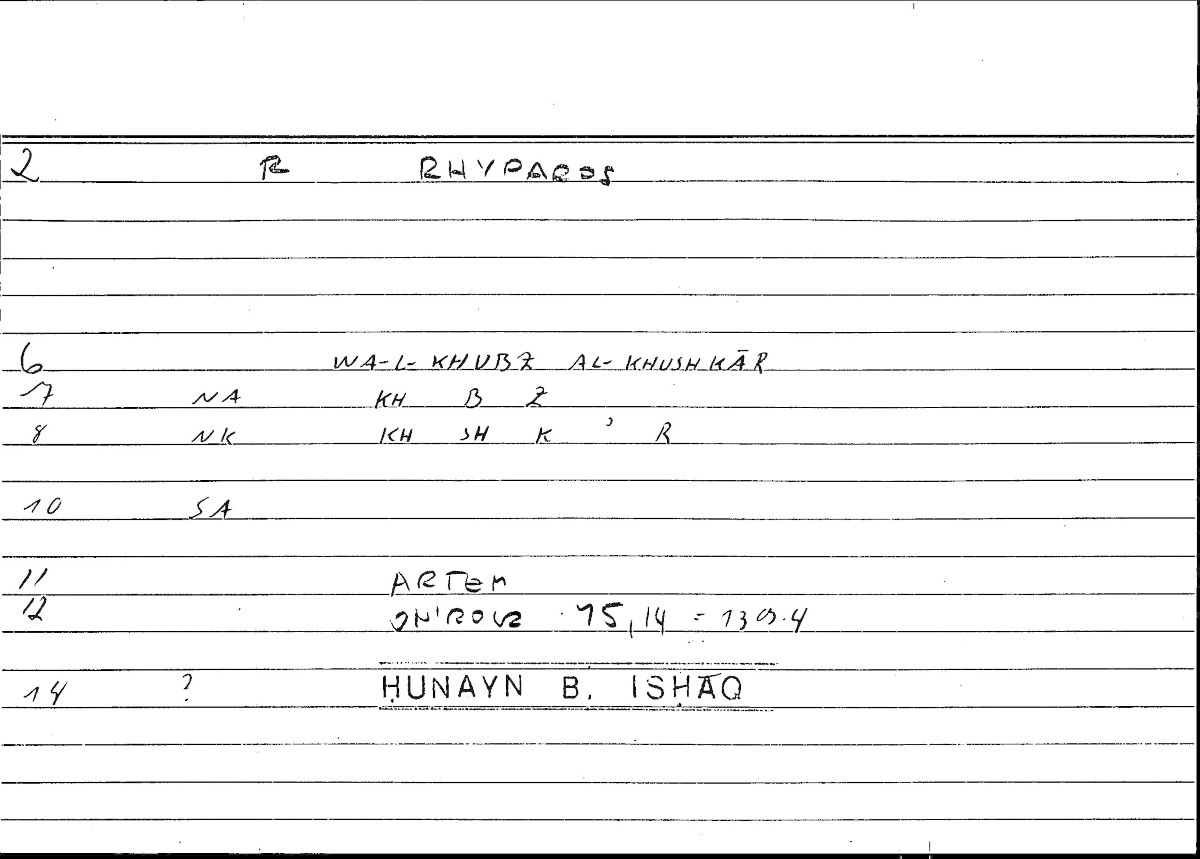 2 R RHYPAROS
6 WA-L-KHUBZ AL-KHUSHKĀR
7 NA KH B Z
8 NK KH SH K ʾ R
10 SA
11 ARTEM
12 ONIROCR 15,14 = 1309.4
14 ? ḤUNAYN B. ISḤĀQ